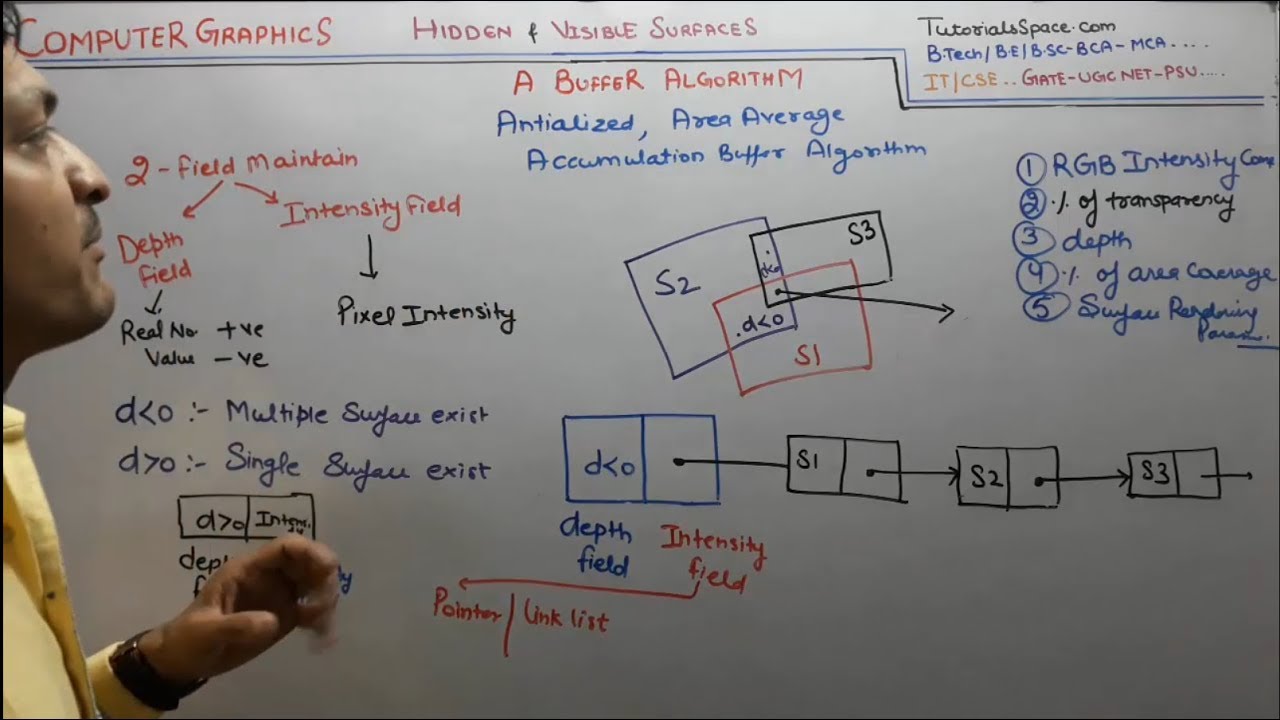 COMPUTER GRAPHICS
HIDDEN & VISIBLE SURFACES
TutorialsSpace.com
B.Tech/B.E/B.SC-BCA-MCA....
IT/CSE.. GATE-UGC NET-PSU.....
A BUFFER ALGORITHM
Antialized, Area Average
Accumulation Buffer Algorithm
2-field Maintain
Intensity field
Depth
field
Real No +ve
Value -ve
Pixel Intensity
d<0 :- Multiple Surface exist
d>0 :- Single Surface exist
d>0
S2
S3
d<0
.d<0
S1
① RGB Intensity Comp
② % of transparency
③ depth
④ % of area Coverage
⑤ Surface Rendering
Param.
d<0
S1
S2
S3
depth
field
Intensity
field
Pointer / Link list